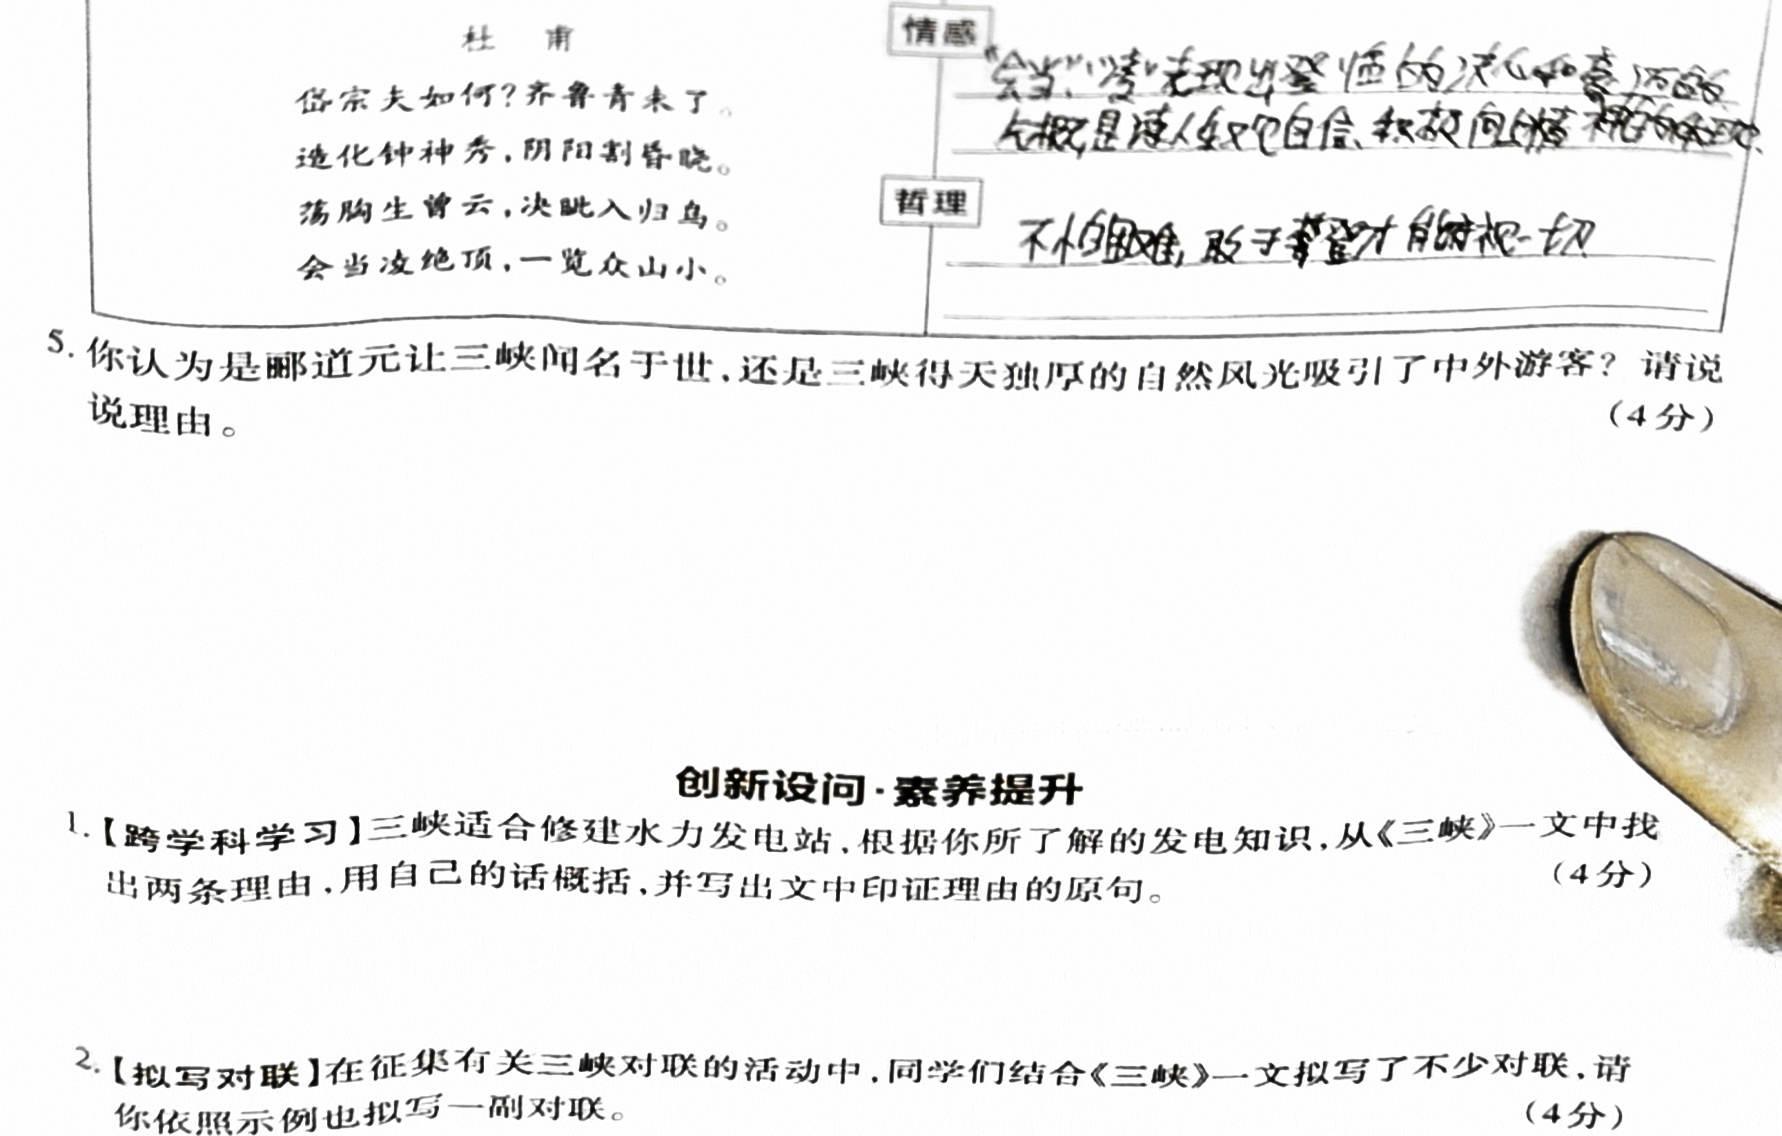 杜 甫
岱宗夫如何?齐鲁青未了。
造化钟神秀,阴阳割昏晓。
荡胸生曾云,决眦入归鸟。
会当凌绝顶,一览众山小。
情感
"会当""凌"表现出登 的决心和豪迈的
气概,是诗人 自信、积极向
哲理
不怕困难,敢于攀登才能俯视一切
5.你认为是郦道元让三峡闻名于世,还是三峡得天独厚的自然风光吸引了中外游客?请说
说理由。 (4分)
创新设问·素养提升
1.【跨学科学习】三峡适合修建水力发电站,根据你所了解的发电知识,从《三峡》一文中找
出两条理由,用自己的话概括,并写出文中印证理由的原句。 (4分)
2.【拟写对联】在征集有关三峡对联的活动中,同学们结合《三峡》一文拟写了不少对联,请
你依照示例也拟写一副对联。 (4分)